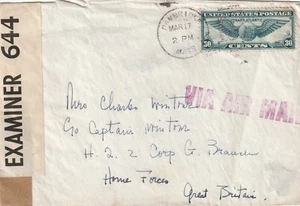 EXAMINER 644
MAR 17
2 PM
UNITED STATES POSTAGE
30 CENTS 30
VIA AIR MAIL
Mrs Charles Wintour
C/o Captain Wintour
H. Q. 2 Corp G. Branch
Home Forces
Great Britain.